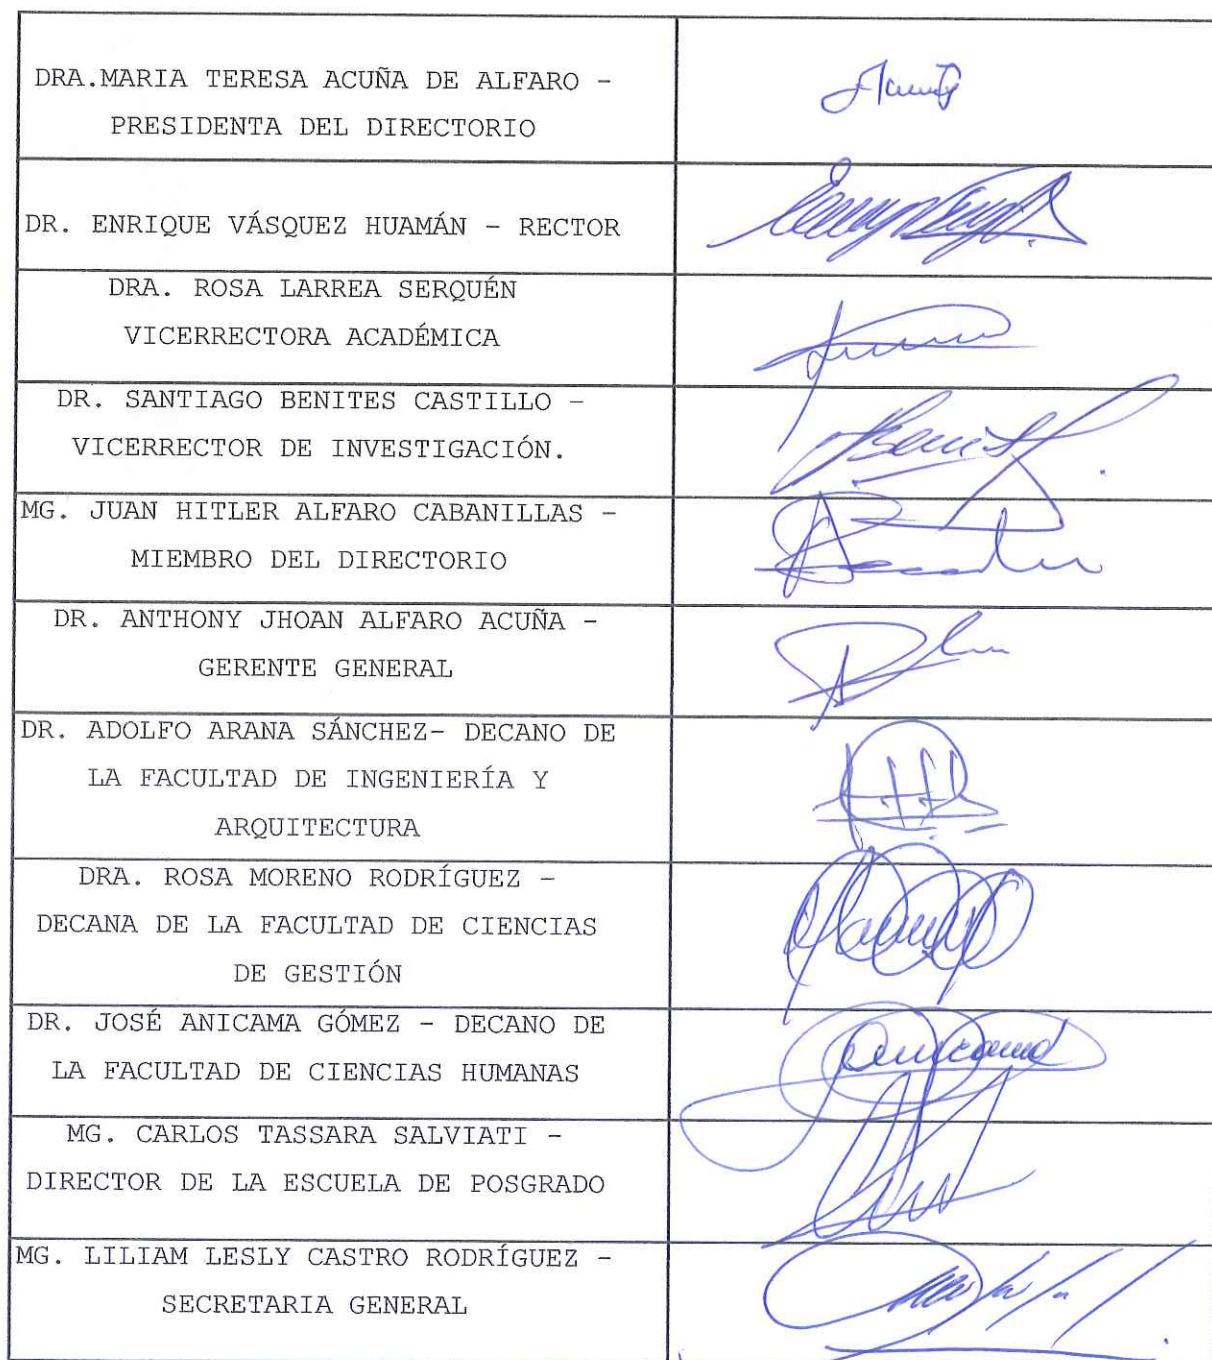 DRA.MARIA TERESA ACUÑA DE ALFARO -
PRESIDENTA DEL DIRECTORIO
DR. ENRIQUE VÁSQUEZ HUAMÁN - RECTOR
DRA. ROSA LARREA SERQUÉN
VICERRECTORA ACADÉMICA
DR. SANTIAGO BENITES CASTILLO -
VICERRECTOR DE INVESTIGACIÓN.
MG. JUAN HITLER ALFARO CABANILLAS -
MIEMBRO DEL DIRECTORIO
DR. ANTHONY JHOAN ALFARO ACUÑA -
GERENTE GENERAL
DR. ADOLFO ARANA SÁNCHEZ- DECANO DE
LA FACULTAD DE INGENIERÍA Y
ARQUITECTURA
DRA. ROSA MORENO RODRÍGUEZ -
DECANA DE LA FACULTAD DE CIENCIAS
DE GESTIÓN
DR. JOSÉ ANICAMA GÓMEZ - DECANO DE
LA FACULTAD DE CIENCIAS HUMANAS
MG. CARLOS TASSARA SALVIATI -
DIRECTOR DE LA ESCUELA DE POSGRADO
MG. LILIAM LESLY CASTRO RODRÍGUEZ -
SECRETARIA GENERAL